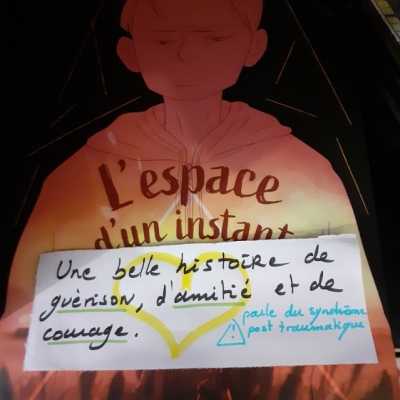 L'espace
d'un instant
Une belle histoire de
guérison, d'amitié et de
courage.
parle du syndrôme
post traumatique